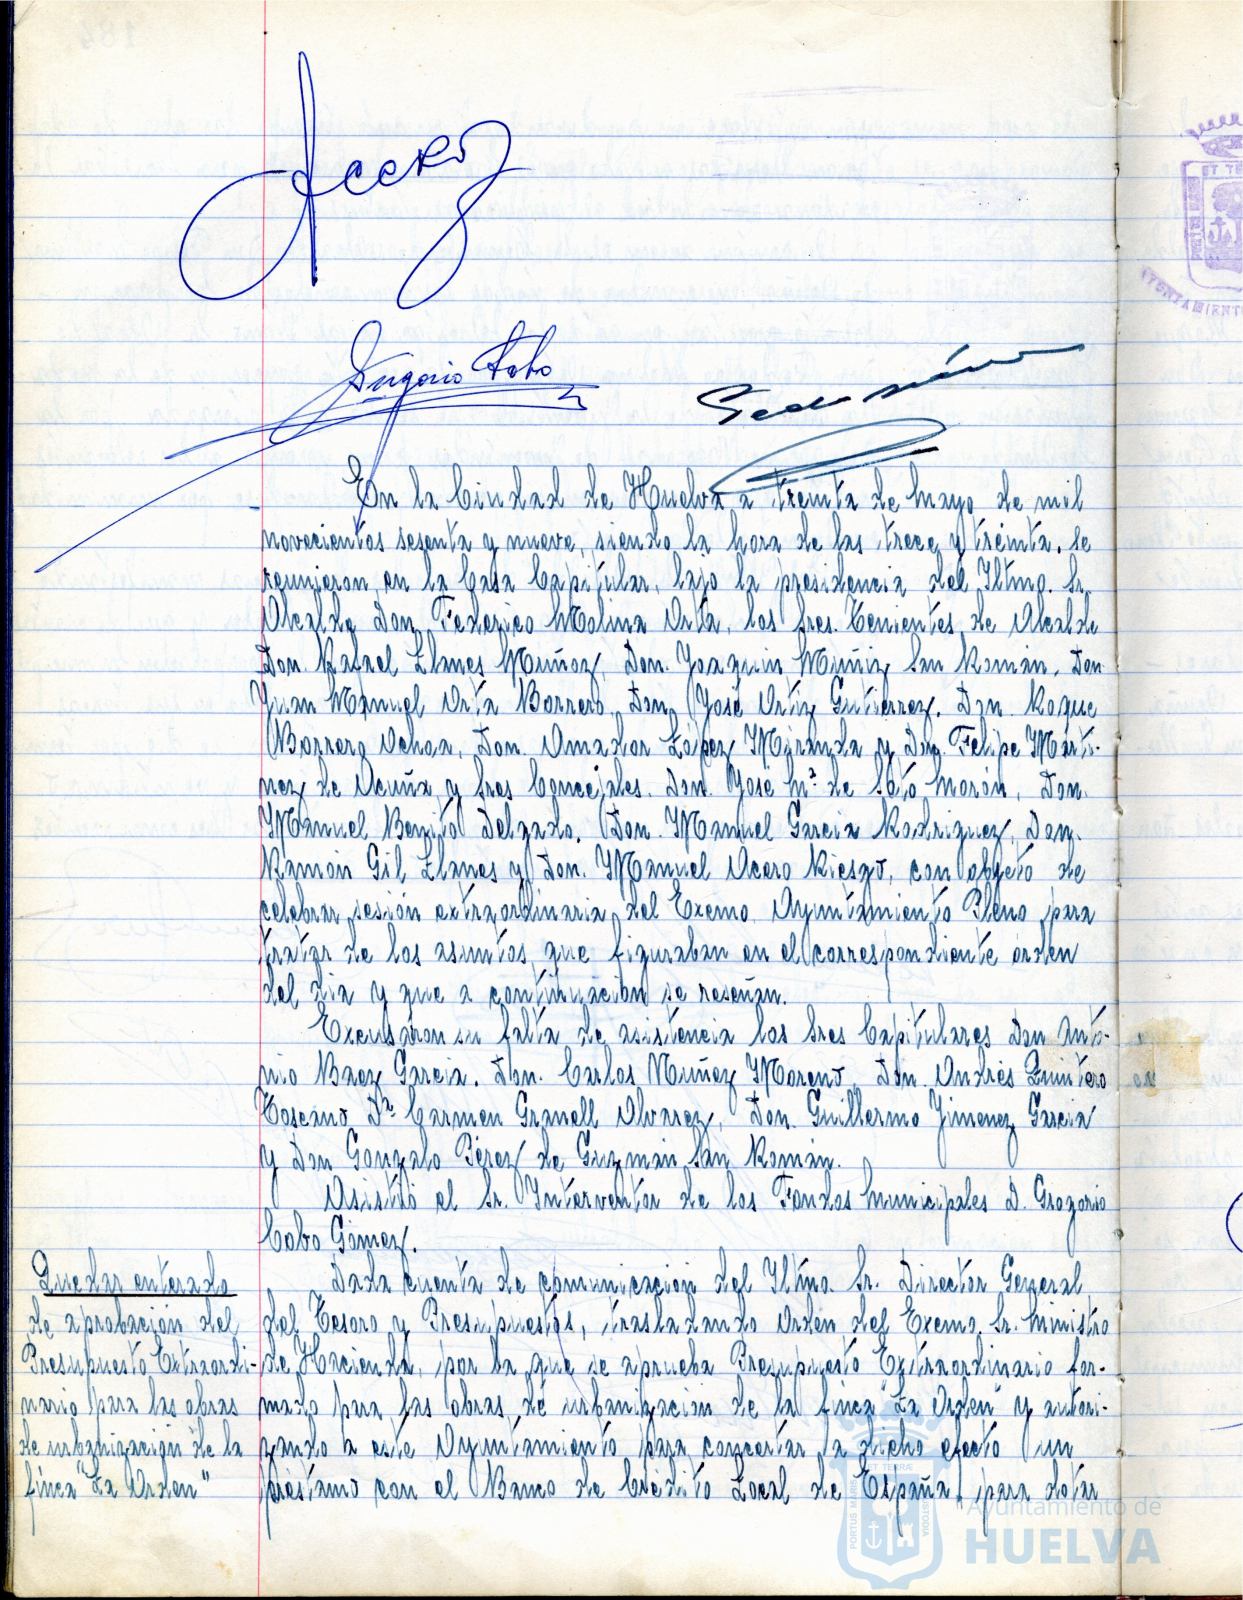 Acero
Gregorio Cobo
En la Ciudad de Huelva a treinta de mayo de mil
novecientos sesenta y nueve, siendo la hora de las trece y treinta, se
reunieron, en la Casa Capitular, bajo la presidencia del Iltmo. Sr.
Alcalde Don Federico Molina Orta, los Sres. Tenientes de Alcalde
Don. Rafael Llanes Muñoz, Don. Joaquin Muñiz San Román, Don
Juan Manuel Orta Borrero, Don José Ortiz Gutierrez, Don. Roque
Borrero Ochoa, Don. Amador López Miranda y Don. Felipe Marti-
nez de Acuña y Sres Concejales, Don. José Mª de Soto Morón, Don.
Manuel Benito Delgado, Don. Manuel Garcia Rodriguez, Don.
Ramón Gil Llanes y Don. Manuel Acero Riesgo, con objeto de
celebrar sesión extraordinaria del Excmo. Ayuntamiento Pleno para
tratar de los asuntos que figuraban en el correspondiente órden
del dia y que a continuación se reseñan.
Excusaron su falta de asistencia los Sres Capitulares Don Anto-
nio Baez Garcia, Don. Carlos Muñoz Moreno, Don. Andrés Quintero
Toscano Dª Carmen Granell Alvarez, Don. Guillermo Jimenez Garcia
y Don Gonzalo Pérez de Guzmán San Román.
Asistió el Sr. Interventor de los Fondos Municipales D. Gregorio
Cobo Gómez.
Quedar enterado
de aprobación del
Presupuesto Extraordi-
nario para las obras
de urbanización de la
finca "La Orden"
Dada cuenta de comunicación del Iltmo. Sr. Director General
del Tesoro y Presupuestos, trasladando Orden del Excmo. Sr. Ministro
de Hacienda, por la que se aprueba Presupuesto Extraordinario for-
mado para las obras de urbanización de la finca "La Orden" y autori-
zando a este Ayuntamiento para concertar a dicho efecto un
préstamo con el Banco de Crédito Local de España, para dotar
Ayuntamiento de
HUELVA